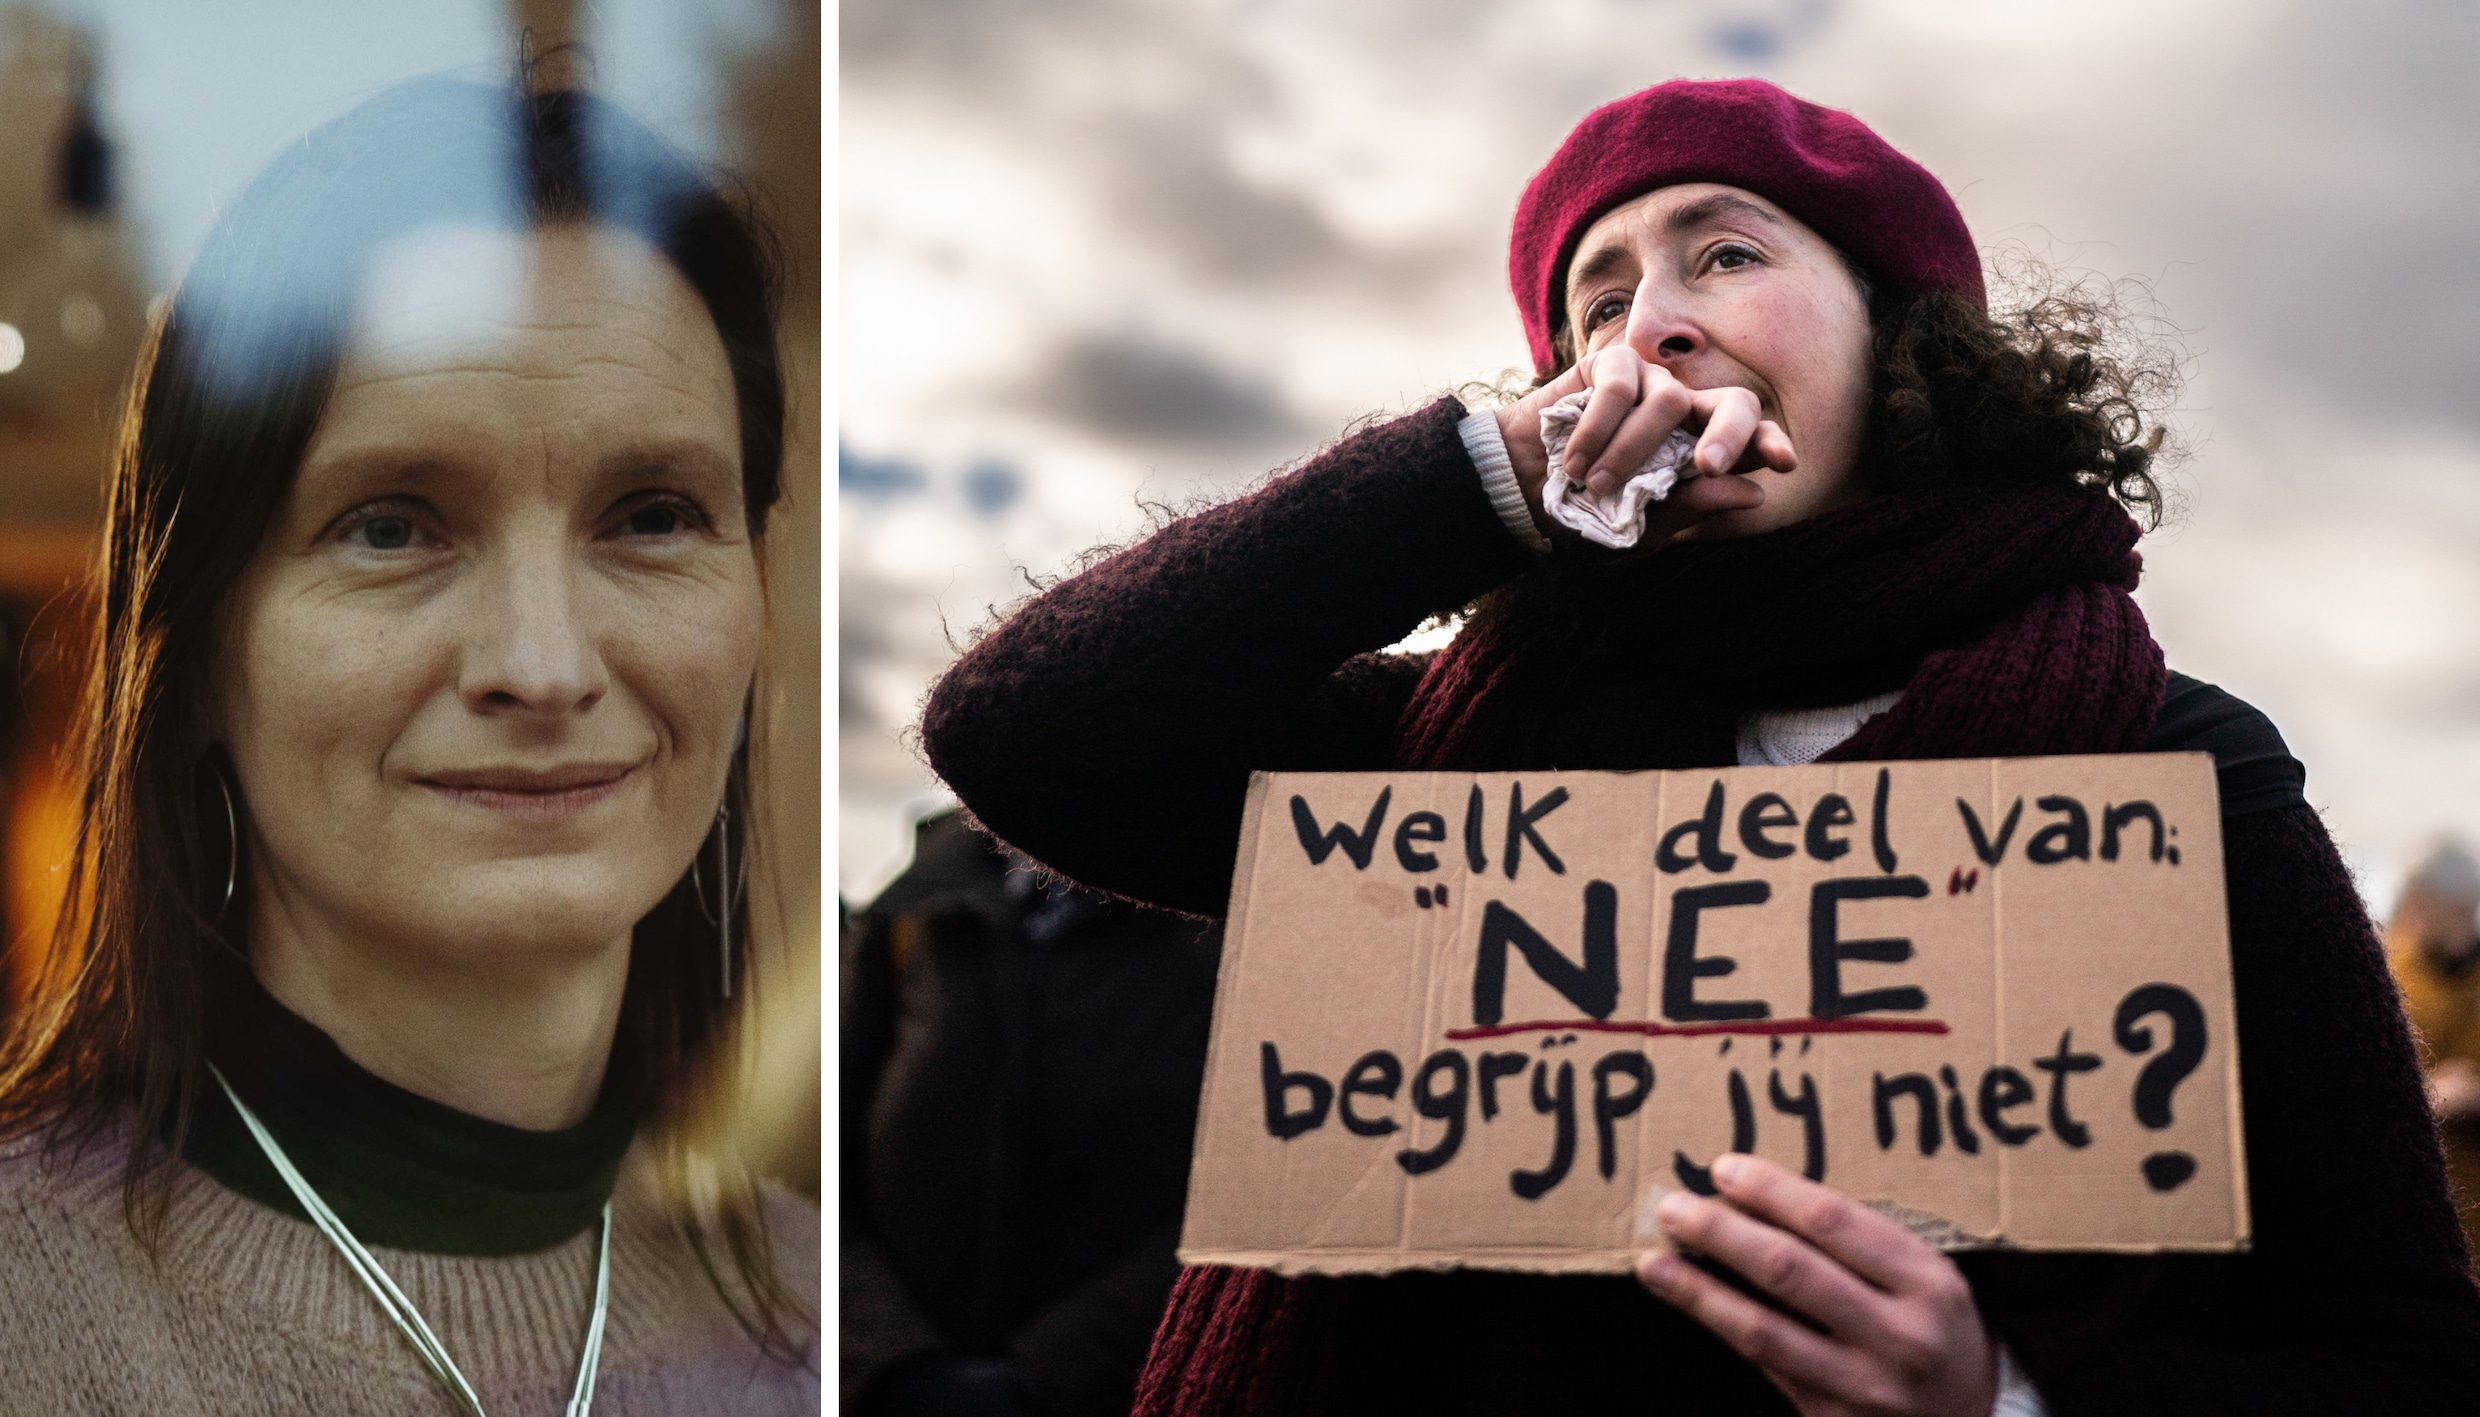 Welk deel van:
"NEE"
begrijp jij niet?